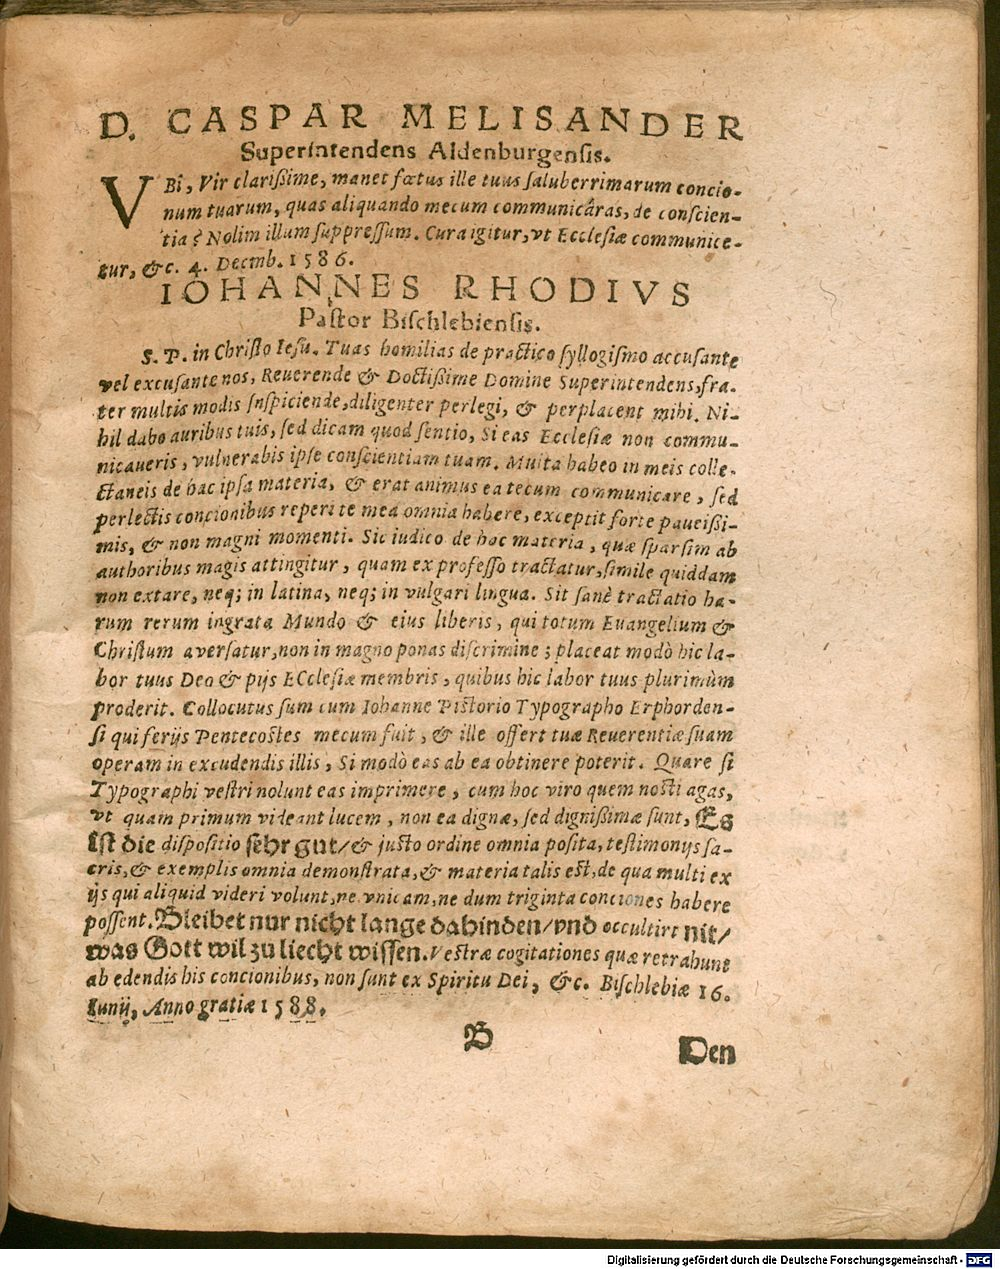 D. CASPAR MELISANDER
Superintendens Aldenburgensis.
VBi, Vir clarißime, manet fœtus ille tuus ſaluberrimarum concio-
num tuarum, quas aliquando mecum communicâras, de conſcien-
tia? Nolim illum ſuppreſſum. Cura igitur, vt Eccleſiæ communice-
tur, &c. 4. Decmb. 1586.
IOHANNES RHODIVS
Paſtor Biſchlebienſis.
S. P. in Chriſto Ieſu. Tuas homilias de practico ſyllogiſmo accuſante
vel excuſante nos, Reuerende & Doctißime Domine Superintendens, fra-
ter multis modis ſuſpiciende, diligenter perlegi, & perplacent mihi. Ni-
hil dabo auribus tuis, ſed dicam quod ſentio, Si eas Eccleſiæ non commu-
nicaueris, vulnerabis ipſe conſcientiam tuam. Multa habeo in meis colle-
ctaneis de hac ipſa materia, & erat animus ea tecum communicare, ſed
perlectis concionibus reperi te mea omnia habere, exceptit forte paucißi-
mis, & non magni momenti. Sic iudico de hac materia, quæ ſparſim ab
authoribus magis attingitur, quam ex profeſſo tractatur, ſimile quiddam
non extare, neq; in latina, neq; in vulgari lingua. Sit ſanè tractatio ha-
rum rerum ingrata Mundo & eius liberis, qui totum Euangelium &
Chriſtum averſatur, non in magno ponas diſcrimine; placeat modò hic la-
bor tuus Deo & pijs ECcleſiæ membris, quibus hic labor tuus plurimùm
proderit. Collocutus ſum cum Iohanne Piſtorio Typographo Erphorden-
ſi qui ferijs Pentecoſtes mecum fuit, & ille offert tuæ Reuerentiæ ſuam
operam in excudendis illis, Si modò eas ab ea obtinere poterit. Quare ſi
Typographi veſtri nolunt eas imprimere, cum hoc viro quem noſti agas,
vt quam primum videant lucem, non ea dignæ, ſed dignißimæ ſunt, Es
iſt die diſpoſitio ſehr gut/ & juſto ordine omnia poſita, teſtimonijs ſa-
cris, & exemplis omnia demonſtrata, & materia talis eſt, de qua multi ex
ijs qui aliquid videri volunt, ne vnicam, ne dum triginta conciones habere
poſſent. Bleibet nur nicht lange dahinden/ vnd occultirt nit/
was Gott wil zu liecht wiſſen. Veſtræ cogitationes quæ retrahunt
ab edendis his concionibus, non ſunt ex Spiritu Dei, &c. Biſchlebiæ 16.
Iunij, Anno gratiæ 1588.
B
Den
Digitalisierung gefördert durch die Deutsche Forschungsgemeinschaft - DFG